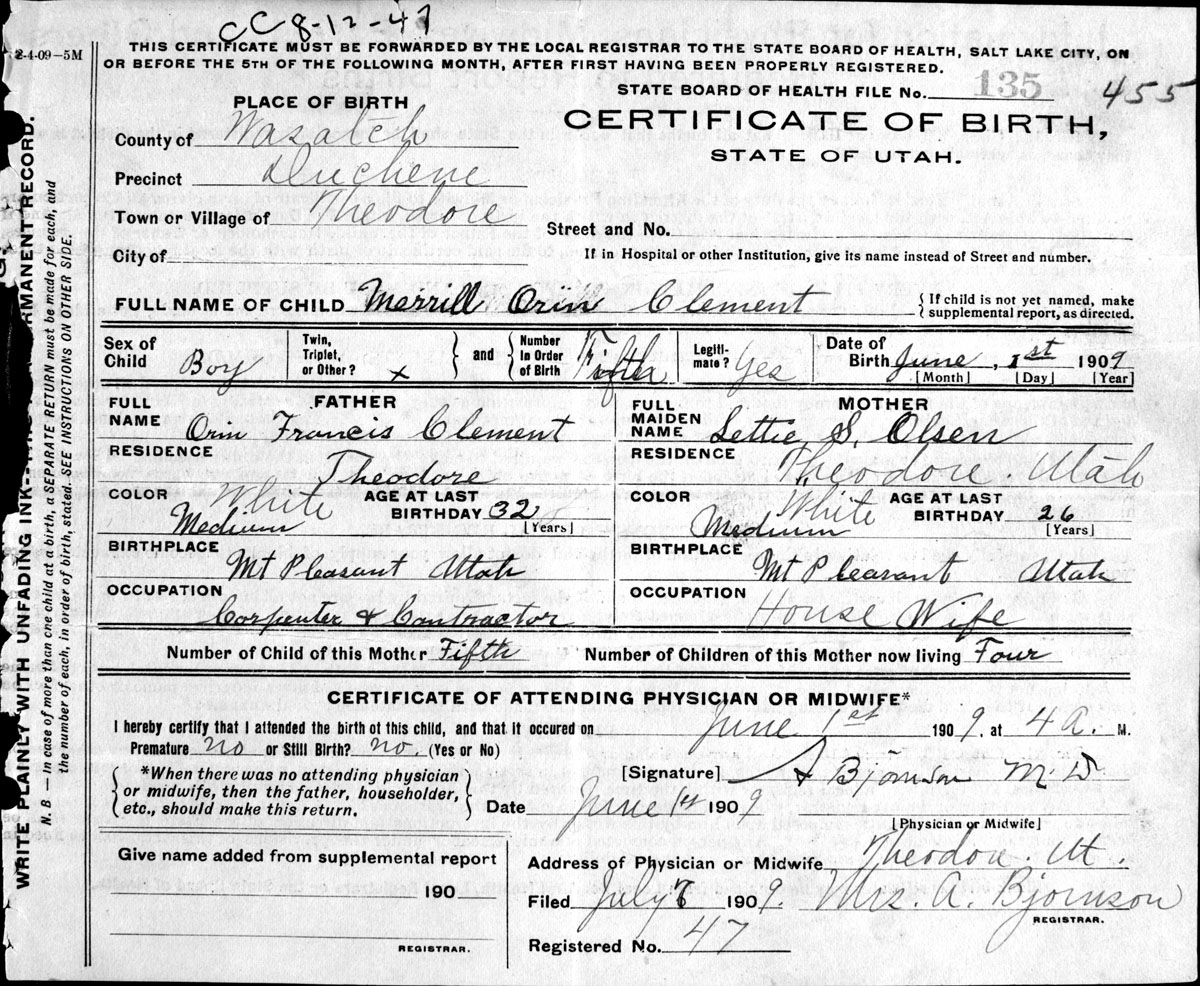 CC 8-12-47
2-4-09—5M
THIS CERTIFICATE MUST BE FORWARDED BY THE LOCAL REGISTRAR TO THE STATE BOARD OF HEALTH, SALT LAKE CITY, ON
OR BEFORE THE 5TH OF THE FOLLOWING MONTH, AFTER FIRST HAVING BEEN PROPERLY REGISTERED.
STATE BOARD OF HEALTH FILE No. 135 455
PLACE OF BIRTH
CERTIFICATE OF BIRTH,
STATE OF UTAH.
County of Wasatch
Precinct Duchene
Town or Village of Theodore
Street and No.
City of
If in Hospital or other Institution, give its name instead of Street and number.
FULL NAME OF CHILD Merrill Orin Clement
{ If child is not yet named, make
supplemental report, as directed.
Sex of Child Boy
Twin, Triplet, or Other? x
and
Number in Order of Birth Fifth
Legiti-mate? Yes
Date of Birth June, 1st 1909
[Month] [Day] [Year]
FATHER
FULL NAME Orin Francis Clement
RESIDENCE Theodore
COLOR White Medium
AGE AT LAST BIRTHDAY 32 [Years]
BIRTHPLACE Mt Pleasant Utah
OCCUPATION Carpenter & Contractor
MOTHER
FULL MAIDEN NAME Lettie S. Olsen
RESIDENCE Theodore. Utah
COLOR White Medium
AGE AT LAST BIRTHDAY 26 [Years]
BIRTHPLACE Mt Pleasant Utah
OCCUPATION House Wife
Number of Child of this Mother Fifth
Number of Children of this Mother now living Four
CERTIFICATE OF ATTENDING PHYSICIAN OR MIDWIFE*
I hereby certify that I attended the birth of this child, and that it occured on June 1st 1909, at 4 a. M.
Premature no or Still Birth? no. (Yes or No)
{ *When there was no attending physician
or midwife, then the father, householder,
etc., should make this return. }
[Signature] Bjornson M D
Date June 1st 1909
[Physician or Midwife]
Give name added from supplemental report
190
REGISTRAR.
Address of Physician or Midwife Theodore. Ut.
Filed July 7 1909. Mrs. A. Bjornson
REGISTRAR.
Registered No. 47
WRITE PLAINLY WITH UNFADING INK--
RMANENT RECORD.
N. B. — In case of more than one child at a birth, a SEPARATE RETURN must be made for each, and
the number of each, in order of birth, stated. SEE INSTRUCTIONS ON OTHER SIDE.